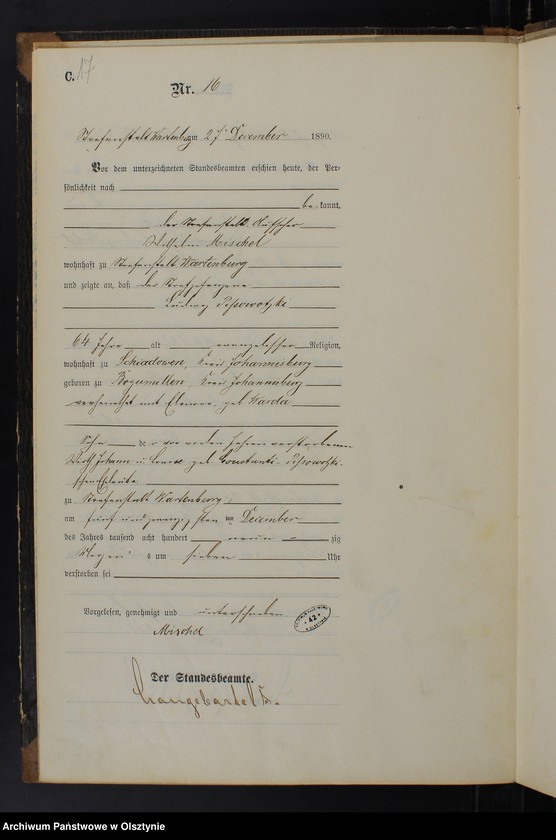 C. 17
Nr. 16
Strafanstalt Wartenburg am 27 December 1890.
Vor dem unterzeichneten Standesbeamten erschien heute, der Per-
sönlichkeit nach
be kannt,
der Strafanstalts Aufseher
Wilhelm Mischel
wohnhaft zu Strafanstalt Wartenburg
und zeigte an, daß der Strafgefangene
Ludwig
64 Jahre alt evangelischer Religion,
wohnhaft zu Kreis Johannisburg
geboren zu Bogumillen, Kreis Johannisburg
verheirathet mit geb Warda
Sohn der vor vielen Jahren verstorbenen
Johann u. geb.
schen Eheleute
zu Strafanstalt Wartenburg,
am fünf und zwanzigsten December
des Jahres tausend acht hundert neun zig
s um sieben Uhr
verstorben sei
Vorgelesen, genehmigt und unterschrieben
Mischel
42
Der Standesbeamte.
Archiwum Państwowe w Olsztynie